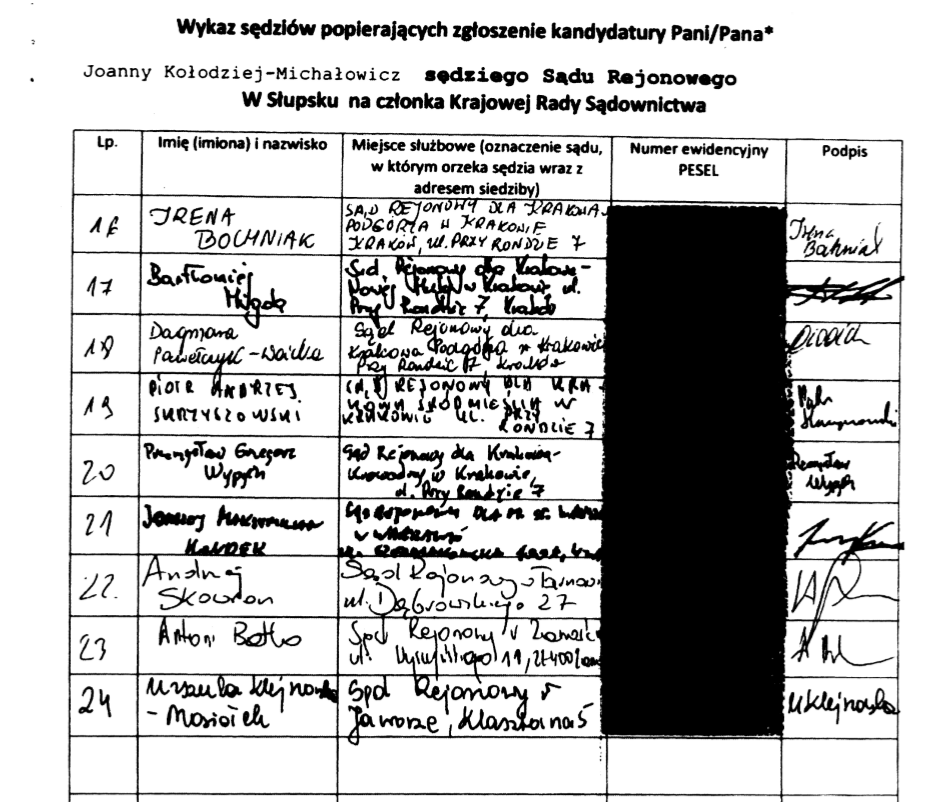 Wykaz sędziów popierających zgłoszenie kandydatury Pani/Pana*
Joanny Kołodziej-Michałowicz sędziego Sądu Rejonowego
W Słupsku na członka Krajowej Rady Sądownictwa
Lp.
Imię (imiona) i nazwisko
Miejsce służbowe (oznaczenie sądu,
w którym orzeka sędzia wraz z
adresem siedziby)
Numer ewidencyjny
PESEL
Podpis
16
IRENA
BOCHNIAK
SĄD REJONOWY DLA KRAKOWA
PODGÓRZA W KRAKOWIE
KRAKÓW, UL. PRZY RONDZIE 7
Irena
Bochniak
17
Bartłomiej
Migda
Sąd Rejonowy dla Krakowa-
Nowej Huty w Krakowie ul.
Przy Rondzie 7, Kraków
18
Dagmara
Pawełczyk-Woicka
Sąd Rejonowy dla
Krakowa Podgórza w Krakowie
Przy Rondzie 7, Kraków
19
PIOTR ANDRZEJ
SKRZYSZOWSKI
SĄD REJONOWY DLA KRA-
KOWA ŚRÓDMIEŚCIA W
KRAKOWIE UL. PRZY
RONDZIE 7
Piotr
20
Przemysław Grzegorz
Wypych
Sąd Rejonowy dla Krakowa-
Krowodrzy w Krakowie,
ul. Przy Rondzie 7
Przemysław
Wypych
21
22.
Andrzej
Skowron
Sąd Rejonowy w Tarnowie
ul. Dąbrowskiego 27
23
Antoni
Sąd Rejonowy w
ul.
24
Urszula Klejnowska
- Mosiołek
Sąd Rejonowy w
Jaworze, Klasztorna 5
UKlejnowska